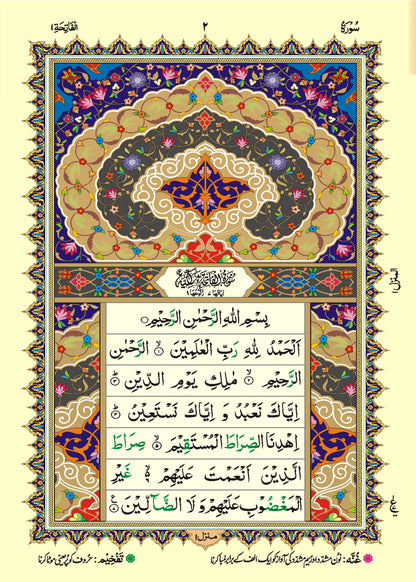 سُوْرَةُ ٢ اَلْفَاتِحَةِ ١
سُوْرَةُ الْفَاتِحَةِ مَكِّيَّةٌ
بِسْمِ اللهِ الرَّحْمٰنِ الرَّحِيْمِ
اَلْحَمْدُ لِلّٰهِ رَبِّ الْعٰلَمِيْنَ ۙ﴿۱﴾ الرَّحْمٰنِ
الرَّحِيْمِ ۙ﴿۲﴾ مٰلِكِ يَوْمِ الدِّيْنِ ؕ﴿۳﴾
اِيَّاكَ نَعْبُدُ وَ اِيَّاكَ نَسْتَعِيْنُ ؕ﴿۴﴾
اِهْدِنَا الصِّرَاطَ الْمُسْتَقِيْمَ ۙ﴿۵﴾ صِرَاطَ
الَّذِيْنَ اَنْعَمْتَ عَلَيْهِمْ ۙ۬﴿۶﴾ غَيْرِ
الْمَغْضُوْبِ عَلَيْهِمْ وَ لَا الضَّآلِّيْنَ ﴿۷﴾
منزل ۱
المنزل ۱
غُنَّه: نون مشدد اور میم مشدد کی آواز کو ایک الف کے برابر لمبا کرنا تَفْخِیْم: حروف کو پُر یعنی موٹا کرنا